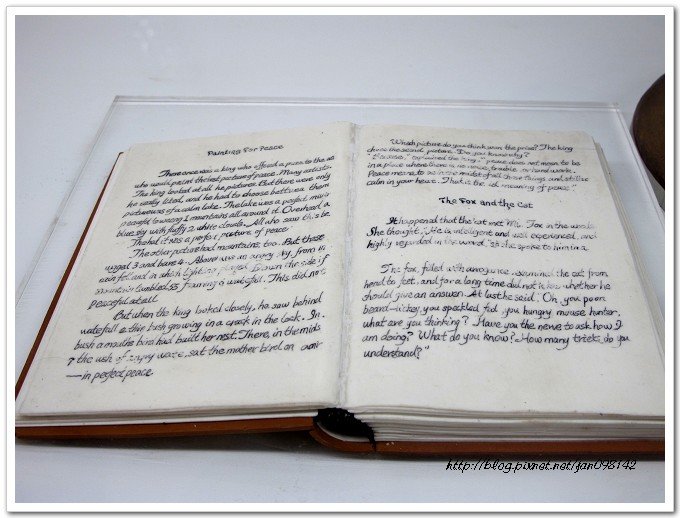 Painting For Peace
There once was a king who offered a prize to the
who would paint the best picture of peace. Many artists
The king looked at all he pictures. But there were only
he really liked, and he had to choose between them.
picture was of a calm lake. The lake was a perfect
peaceful towering mountains all around it. Overhead a
blue sky with fluffy white clouds. All who saw this
Thohad it was a perfect picture of peace
The other picture had mountains, too. But these
rugged and bare. Above was an angry sky, from
rain fell and in which lightning played. Down the side
mountain tumbled foaming waterfall. This did not
peaceful at all.
But when the king looked closely, he saw behind
waterfall a thin bush growing in a crack in the lock. In
bush a mother bird had built her nest. There, in the mids
the ush of angry water, sat the mother bird on
— in perfect peace.
Which picture do you think won the prize? The king
chose the second picture. Do you know why?
"Because," explained the king, "peace does not mean to be
in a place where there is no noise, trouble, or hard work.
Peace means to be in the midst of all those things and still be
calm in your heart. That is the meaning of peace."
The Fox and the Cat
It happened that the cat met Mr. Fox in the woods.
She thought, "He is intelligent and well experienced, and
highly regarded in the world," sh she spoke to him in a
The fox, filled with arrogance, examined the cat from
head to feet, and for a long time did not know whether he
should give an answer. At last he said, Oh, you poor
beard-licker, you speckled fool, you hungry mouse hunter,
what are you thinking? Have you the nerve to ask how I
am doing? What do you know? How many tricks do you
understand?"
http://blog.pixnet.net/jan098142